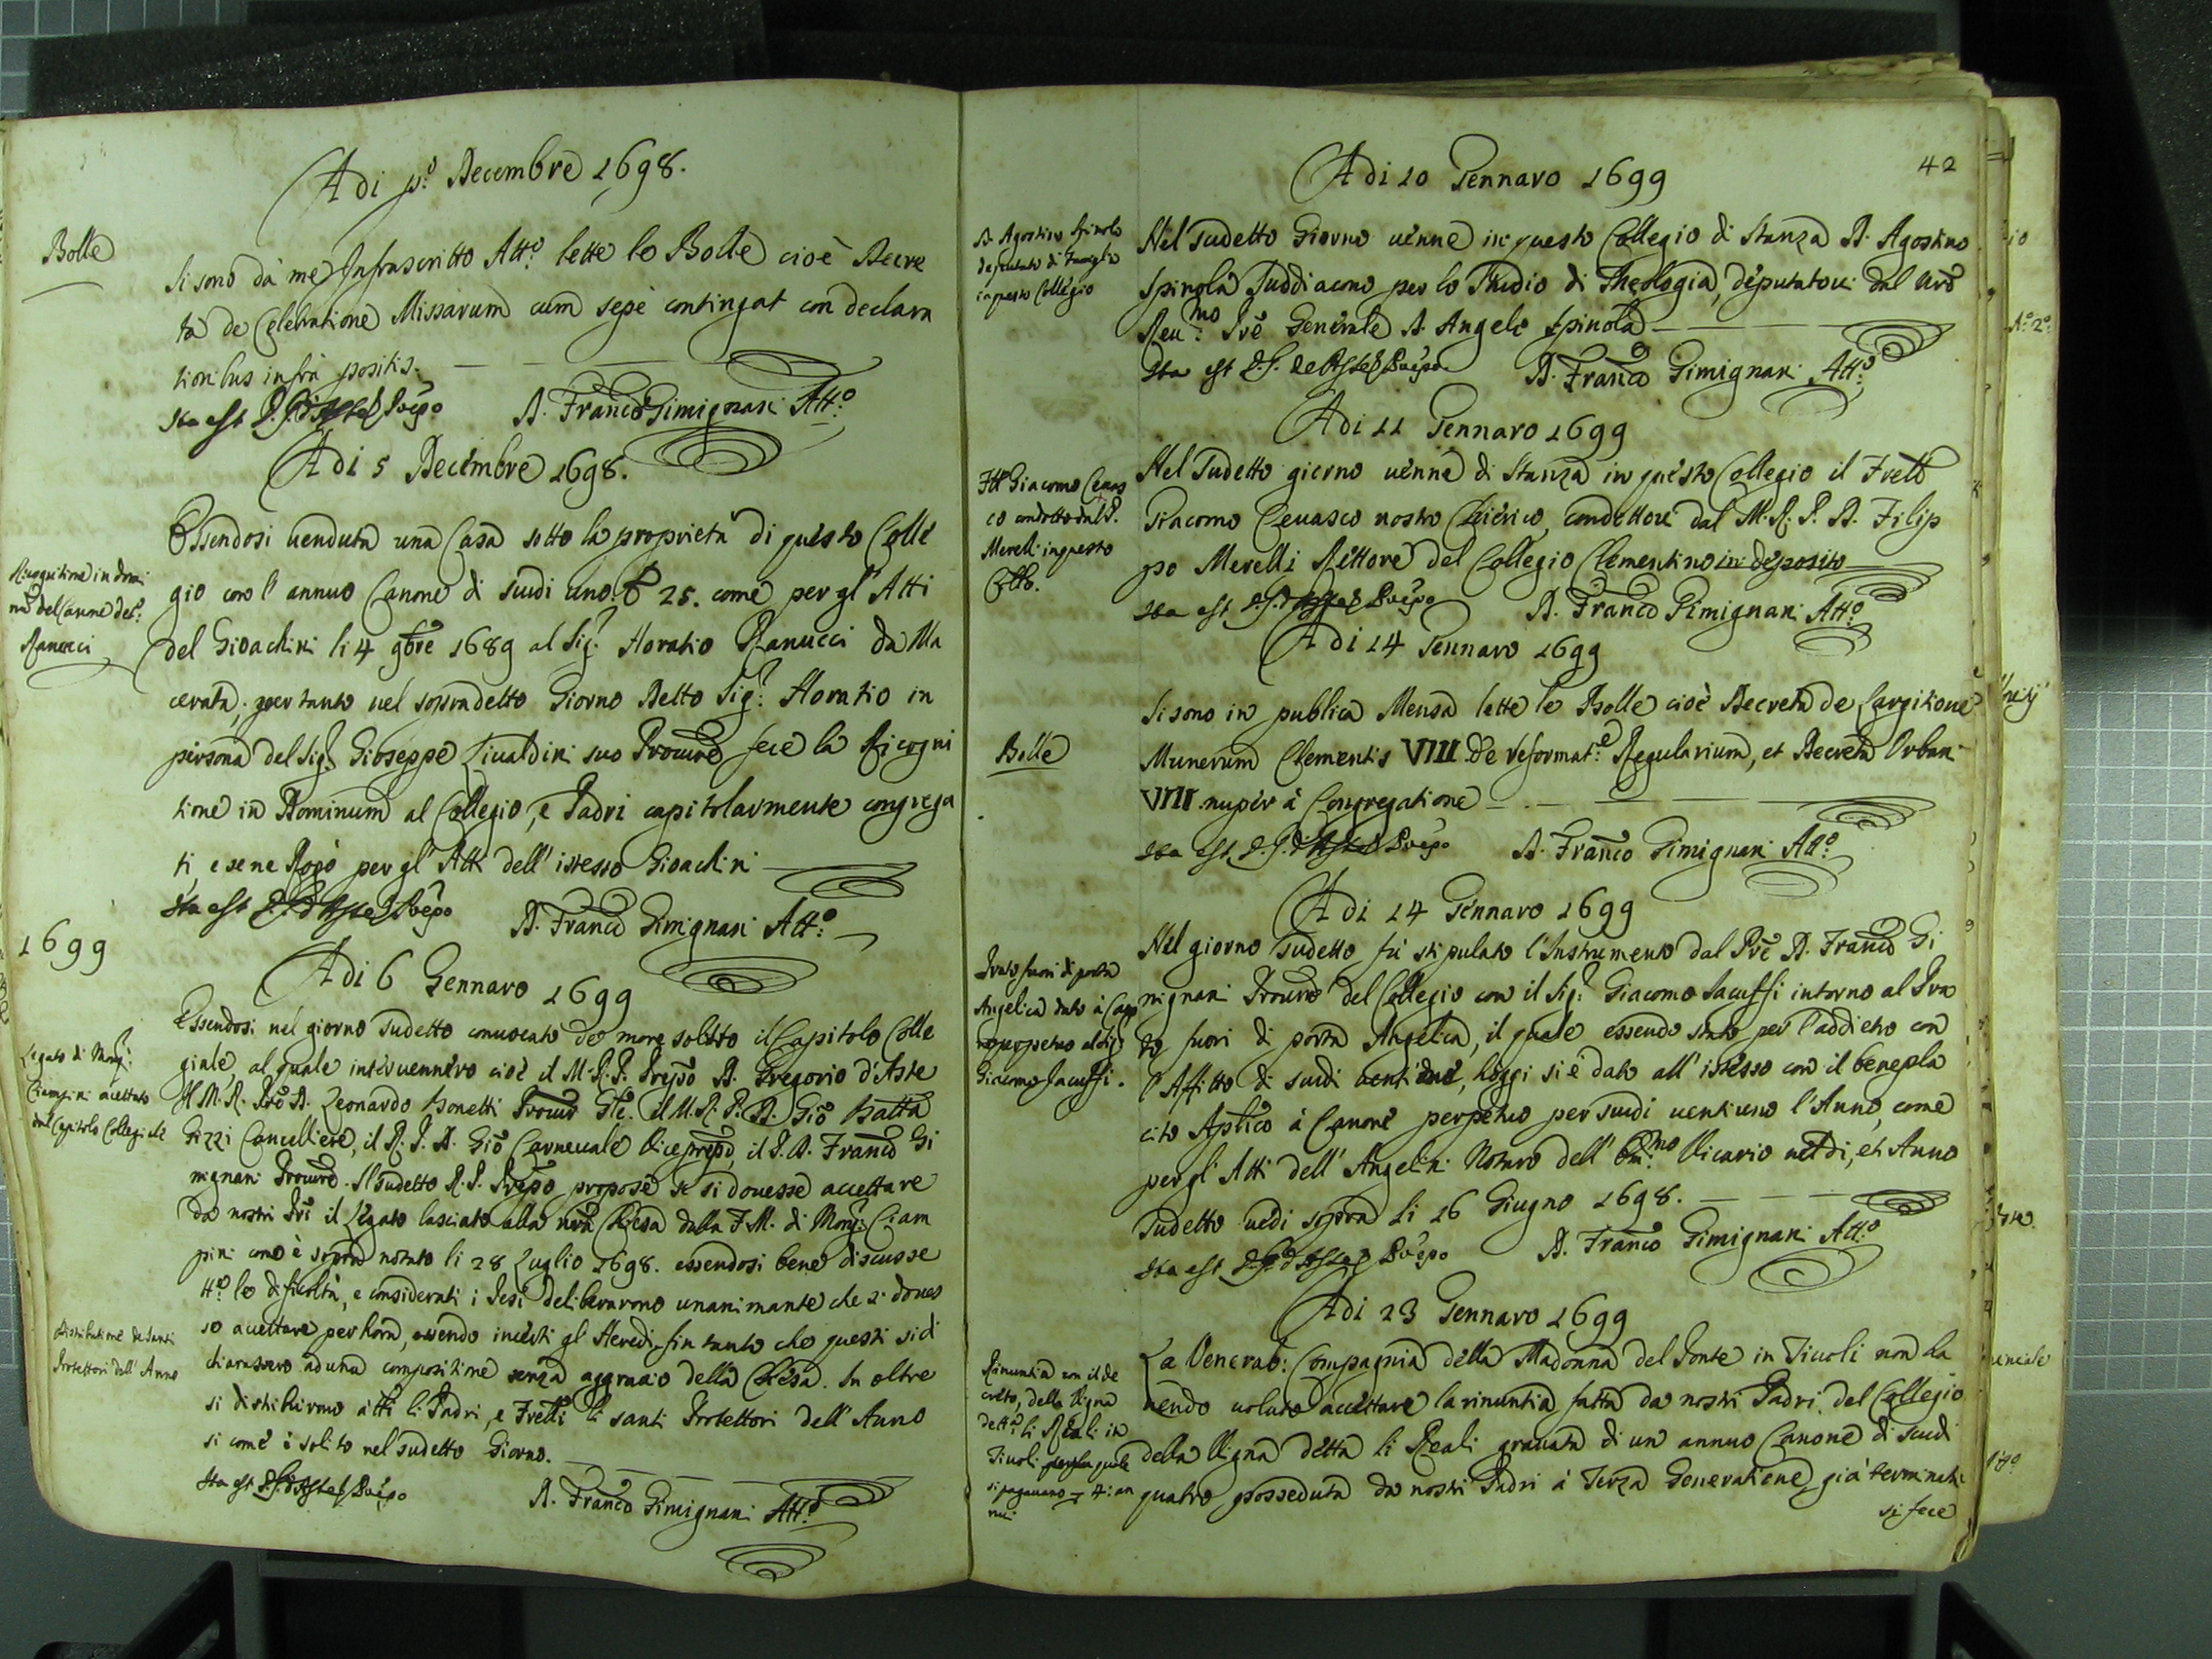 Adi p.º Decembre 1698.
Bolle
Si sono dà me Infrascritto Att.º lette le Bolle cioè Decre
ta de Celebratione Missarum cum sepè contingat con declara
tionibus infrà positis.
Ita est D. G. d'Aste Prepo
D. Franco Gimignani Att.º
Adi 5 Decembre 1698.
Ricognitione in domi
num del Canone del
Ranucci
Essendosi venduta una Casa sotto la proprietà di questo Colle
gio con l'annuo Canone di scudi uno, e 25. come per gl'Atti
del Gioachini li 4 9bre 1689 al Sig.r Horatio Ranucci da Ma
cerata, per tanto nel sopradetto Giorno Detto Sig.r Horatio in
persona del Sig.r Gioseppe Liualdini suo Procure fece la Ricogni
tione in Dominum al Collegio, e Padri capitolarmente congrega
ti, e se ne Rogò per gl'Atti dell'istesso Gioachini
Ita est D. G. d'Aste Prepo
D. Franco Gimignani Att.º
1699
Adi 6 Gennaro 1699
Legato di Mons.r
Ciampini accettato
dal Capitolo Collegiale
Essendosi nel giorno sudetto conuocato de more solito il Capitolo Colle
giale, al quale interuennero cioè il M.R.P. Prepo D. Gregorio d'Aste
Il M.R. Pre D. Leonardo Bonetti Procur Gle. il M.R.P. D. Gio Batta
Gizzi Cancelliere, il R.P.D. Gio Carneuale Viceprepo, il P.D. Franco Gi
mignani Procure. Il sudetto R.P. Prepo propose se si douesse accettare
da nostri Pri il Legato lasciato alla nra Chiesa dalla F.M. di Mons.r Ciam
pini come è sopra notato li 28 Luglio 1698. essendosi bene discusse
tt.e le dificoltà, e considerati i Pesi deliberarono unanimante che si doues
se accettare per hora, essendo incerti gl'Heredi, fin tanto che questi si di
chiarassero ad una compositione senza aggrauio della Chiesa. In oltre
Distributione de Santi
Protettori dell'Anno
si distribuirono à tti li Padri, e Frelli li santi Protettori dell'Anno
si come è solito nel sudetto Giorno.
Ita est D. G. d'Aste Prepo
D. Franco Gimignani Att.º
42
Adi 10 Gennaro 1699
D. Agostino Spinola
deputato di Famiglia
in questo Collegio
Nel sudetto Giorno uenne in questo Collegio di Stanza D. Agostino
Spinola Suddiacono per lo Studio di Theologia, deputatoui dal nro
Reu.mo Pre Generale D. Angelo Spinola
Ita est D. G. de Aste Prepo
D. Franco Gimignani Att.º
Adi 11 Gennaro 1699
Fll Giacomo Ceuas
co condotto dal P.
Merelli in questo
Collo.
Nel sudetto giorno uenne di Stanza in questo Collegio il Frello
Giacomo Ceuasco nostro Chierico, condottoui dal M.R.P.D. Filip
po Merelli Rettore del Collegio Clementino in deposito
Ita est D. G. d'Aste Prepo
D. Franco Gimignani Att.º
Adi 14 Gennaro 1699
Bolle
Si sono in publica Mensa lette le Bolle cioè Decreta de Largitione
Munerum Clementis VIII. De reformat.e Regularium, et Decreta Urbani
VIII. nuper à Congregatione
Ita est D. G. d'Aste Prepo
D. Franco Gimignani Att.º
Adi 14 Gennaro 1699
Prato fuori di porta
Angelica dato à Cano
ne perpetuo al Sig.r
Giacomo Sacuffi.
Nel giorno sudetto fù stipulato l'Instrumento dal Pre D. Franco Gi
mignani Procure del Collegio con il Sig.r Giacomo Sacuffi intorno al Pra
to fuori di porta Angelica, il quale essendo stato per l'addietro con
l'Affitto di scudi uentidue, hoggi si è dato all'istesso con il benepla
cito Aplico à Canone perpetuo per scudi uentiuno l'Anno, come
per gl'Atti dell'Angelini Notaro dell'Em.mo Vicario nel dì, et Anno
sudetto uedi sopra li 16 Giugno 1698.
Ita est D. G. d'Aste Prepo
D. Franco Gimignani Att.º
Adi 23 Gennaro 1699
Rinuntia con il de
creto, della Vigna
detta li Reali in
Tiuoli per la quale
si pagauano 4: an
nui
La Venerab: Compagnia della Madonna del Ponte in Tiuoli non ha
uendo uoluto accettare la rinuntia fatta da nostri Padri del Collegio
della Vigna detta li Reali grauata di un annuo Canone di scudi
quatro posseduta da nostri Padri à Terza Generatione già terminata
si fece